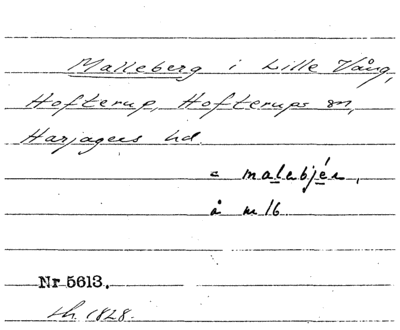 Malleberg i Lille Vång,
Hofterup, Hofterups sn,
Harjagers hd.
= malebjér,
å m 16
Nr 5613.
1828.